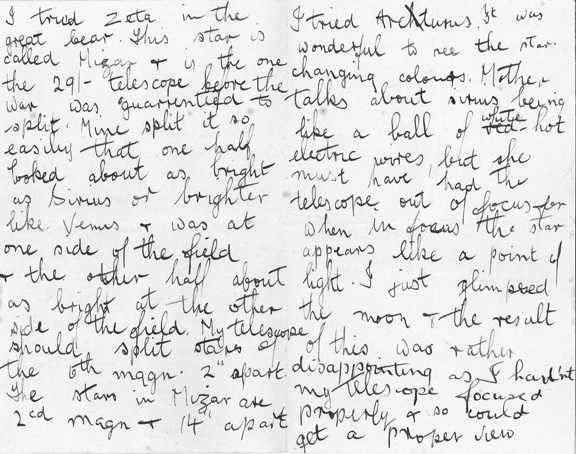 I tried Zeta in the
great bear. This star is
called Mizar & is the one
the 29/- telescope before the
war was guarenteed to
split. Mine split it so
easily that one half
looked about as bright
as Sirius or brighter
like Venus & was at
one side of the field
& the other half about
as bright at the other
side of the field. My telescope
should split stars of
the 6th magn. 2" apart.
The stars in Mizar are
2cd magn & 14" apart
I tried Arcturus. It was
wonderful to see the star
changing colours. Mother
talks about sirius being
like a ball of red white hot
electric wires, but she
must have had the
telescope out of focus for
when in focus the star
appears like a point of
light. I just glimpsed
the moon & the result
of this was rather
disappointing as I hadn't
my telescope focused
properly & so could
get a proper view